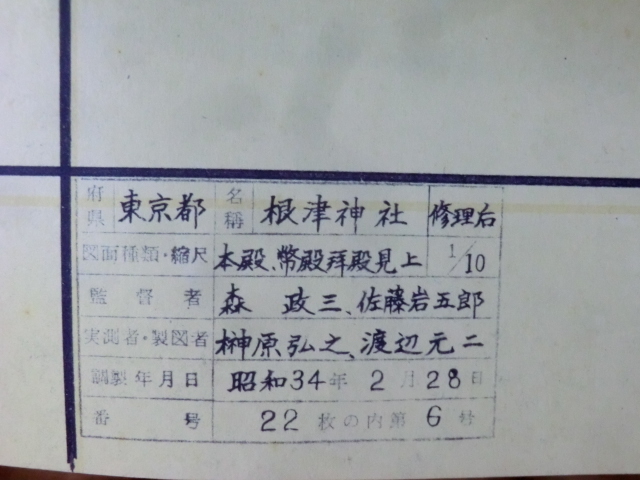 府県 東京都 名稱 根津神社 修理后
図面種類・縮尺 本殿、幣殿拝殿見上 1/10
監督者 森 政三、佐藤岩五郎
実測者・製図者 榊原弘之、渡辺元二
調製年月日 昭和34年2月28日
番号 22枚の内第6号